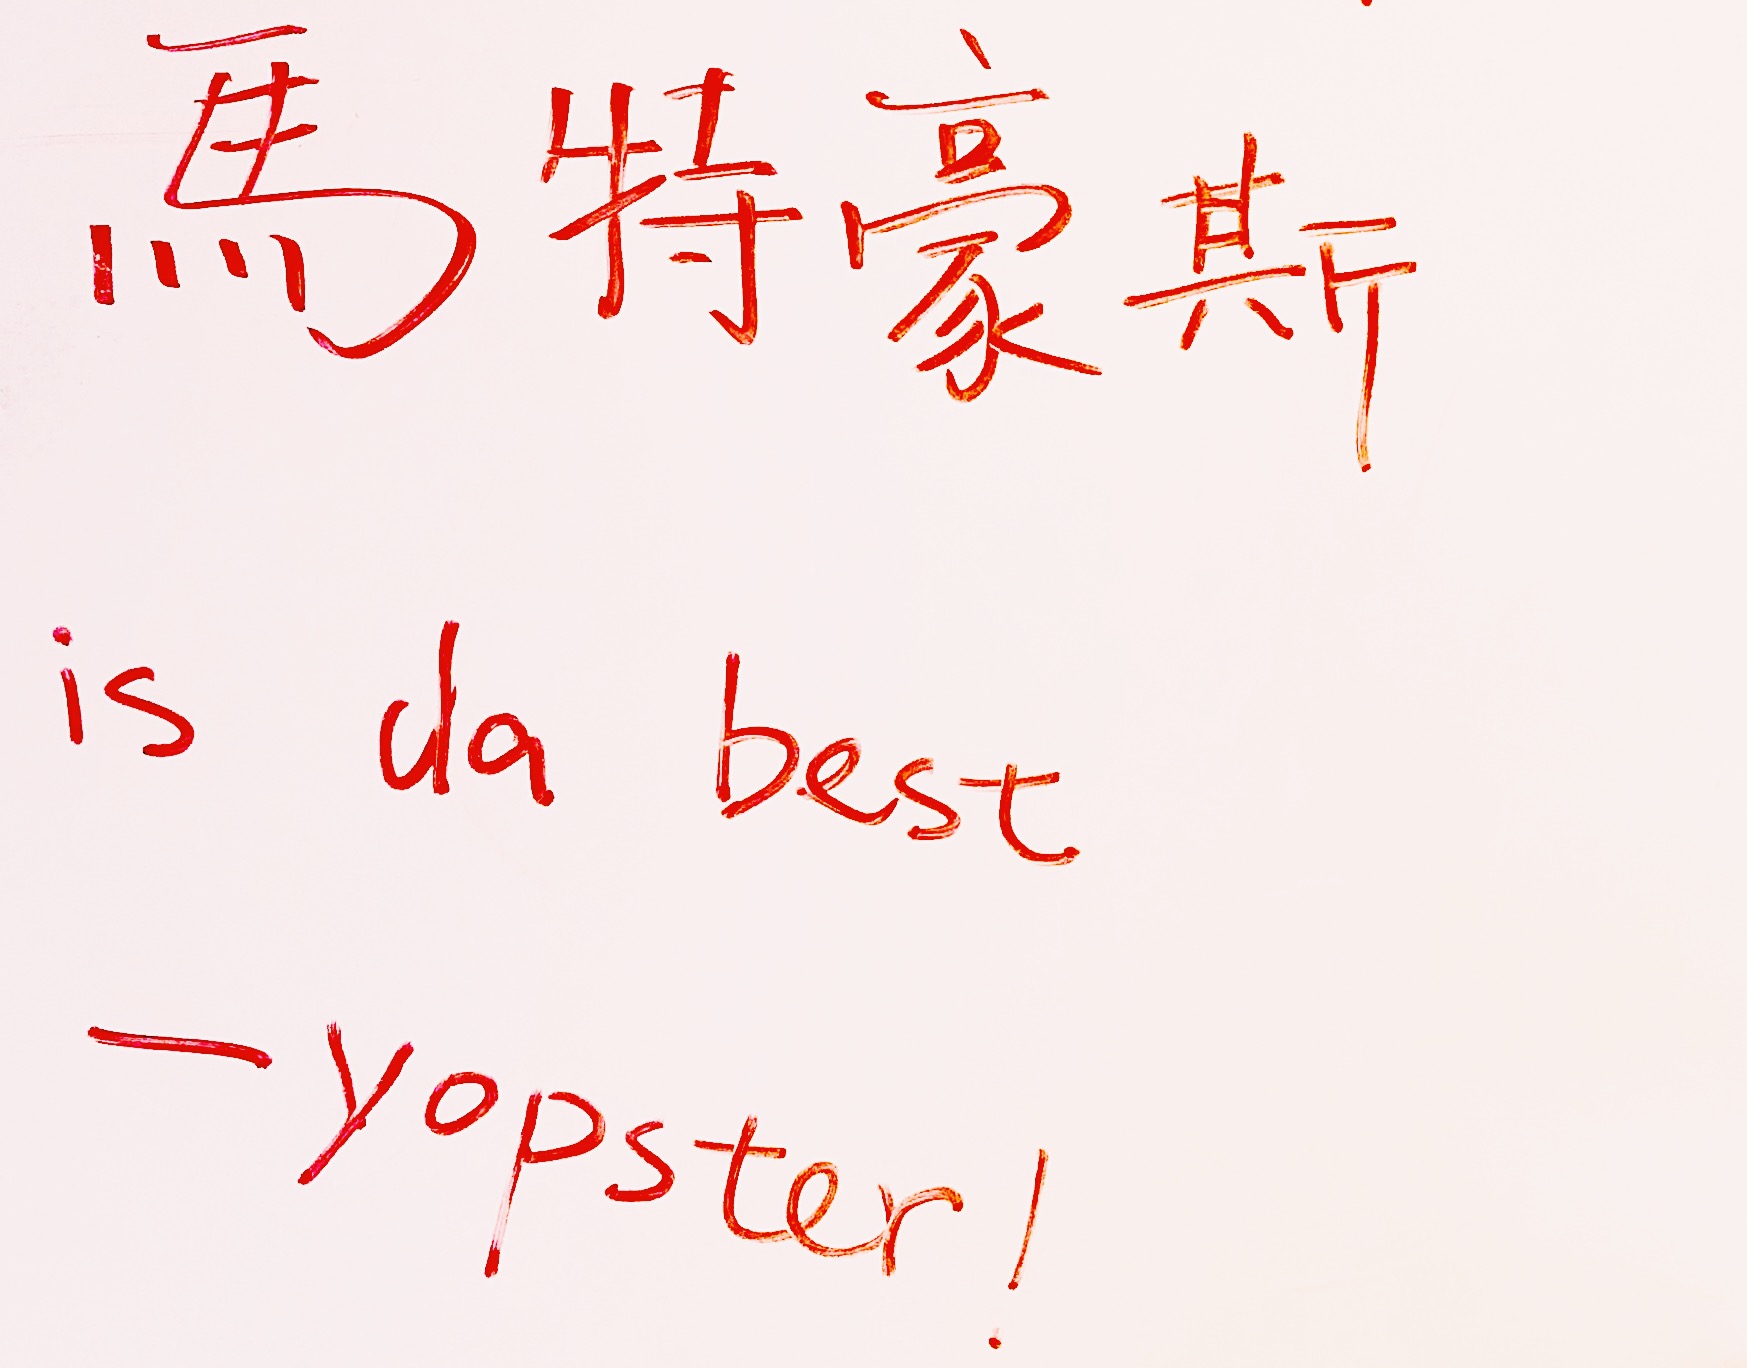 馬特豪斯
is da best
—yopster!